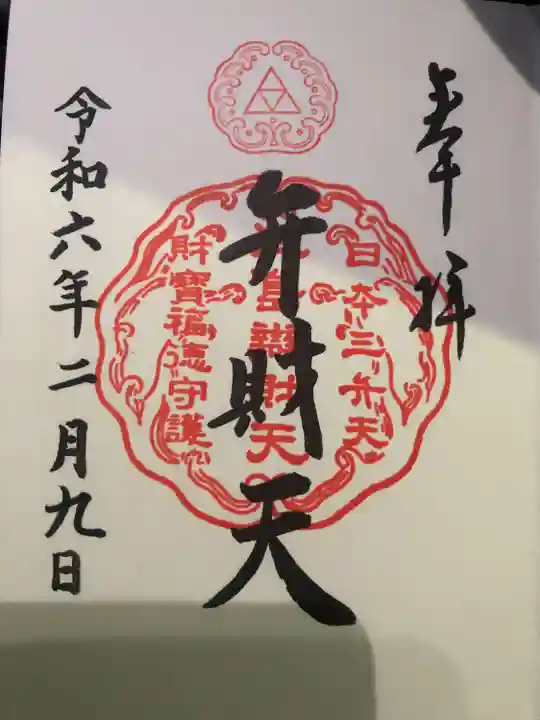 奉拝
弁財天
日本三弁天
島辯財天
財寶福徳守護
令和六年二月九日